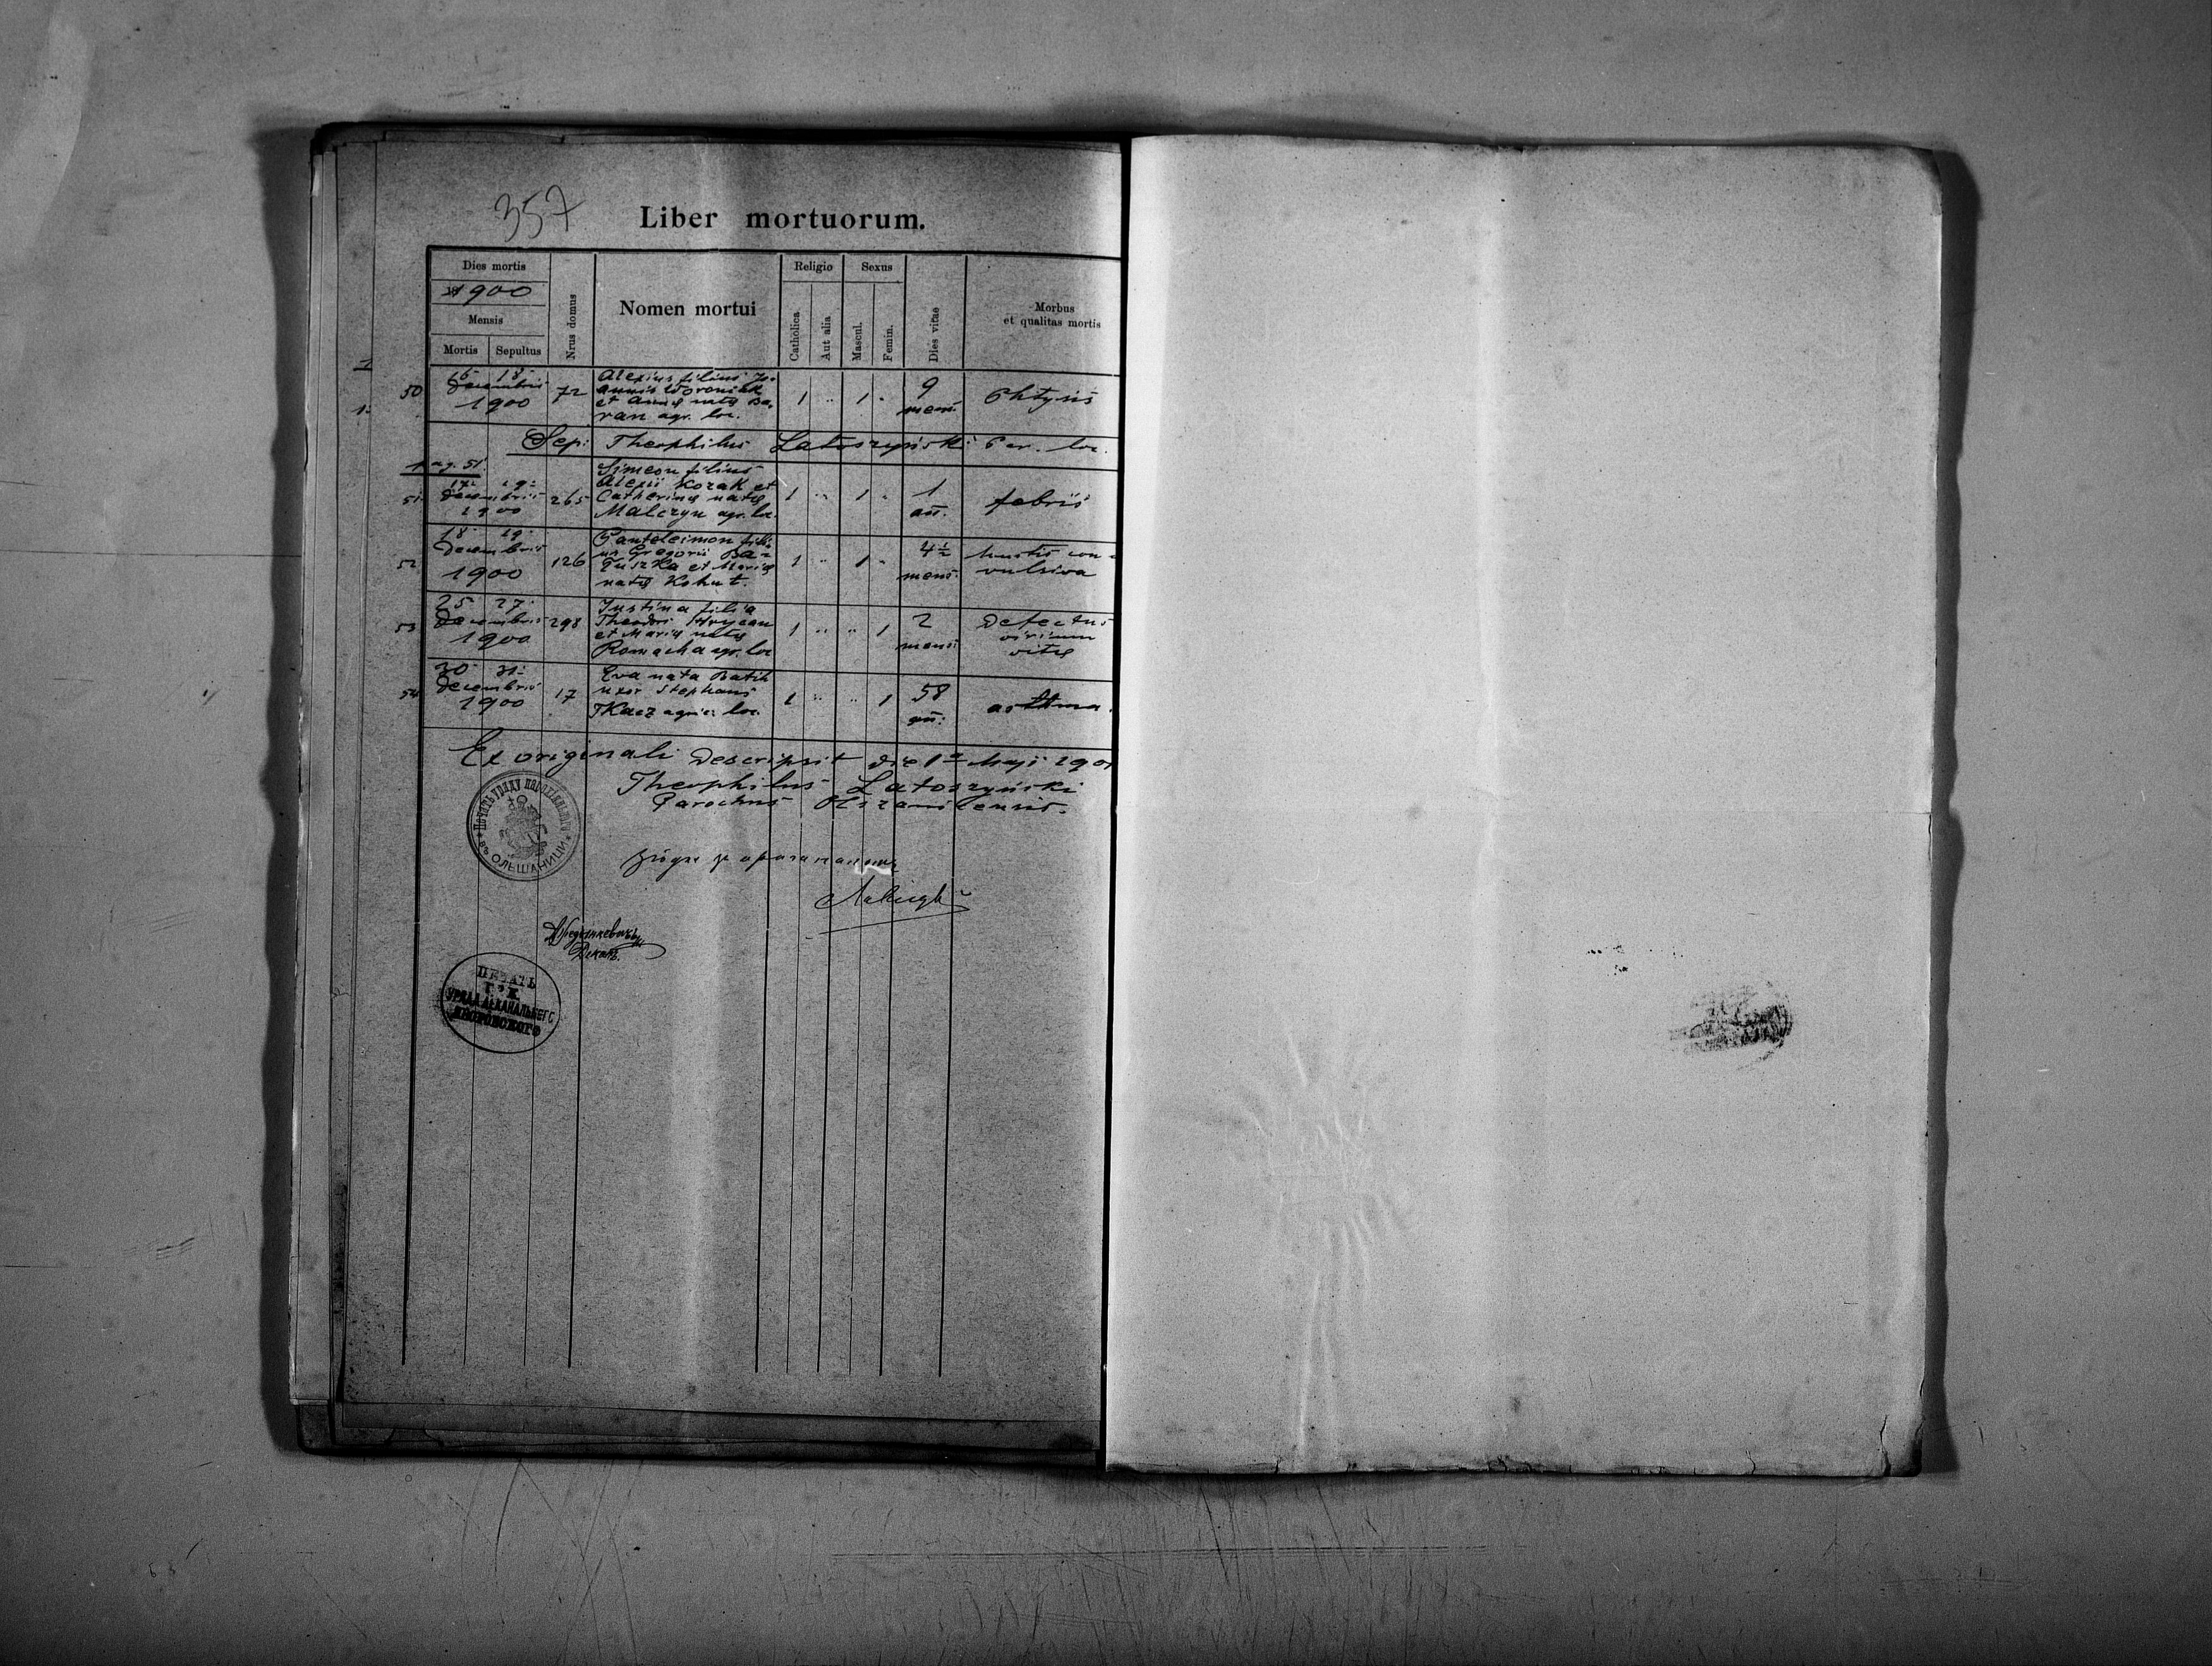 357
Liber mortuorum.
Dies mortis
1900
Mensis
Mortis Sepultus
Nrus domus
Nomen mortui
Religio
Catholica
Aut alia
Sexus
Mascul.
Femin.
Dies vitae
Morbus
et qualitas mortis
50 16 18
Decembris
1900
72
Alexius filius Jo-
annis Woroniak
et Annæ natæ Ba-
ran agr. loc.
1 " 1 "
9
mens.
Phtysis
Sep: Theophilus Latoszyński Par. loc.
pag. 51.
51 17 19
Decembris
1900
265
Simeon filius
Alexii Kozak et
Catherinæ natæ
Malczyn agr. loc.
1 " 1 "
1
an.
febris
52 18 19
Decembris
1900
126
Panteleimon fili-
us Gregorii Ba-
et Mariæ
natæ Kohut.
1 " 1 "
4½
mens.
tussis con-
vulsiva
53 25 27
Decembris
1900
298
Justina filia
Theodori Hrycan
et Mariæ natæ
Romacha agr. loc
1 " " 1
2
mens.
Defectus
virium
vitæ
54 30 31
Decembris
1900
17
Eva nata Batih
uxor Stephani
Tkacz agric. loc.
1 " " 1
58
an:
asthma.
Ex originali descripsit die 1 Maji 1901
Theophilus Latoszyński
Parochus Olszanicensis.
Печать уряду парохіяльного
въ ОЛЬШАНИЦИ
Деканъ.
ПЕЧАТЬ
Г. К.
УРЯДА ДЕКАНАЛЬНЕГО
ЯВОРОВСКОГО